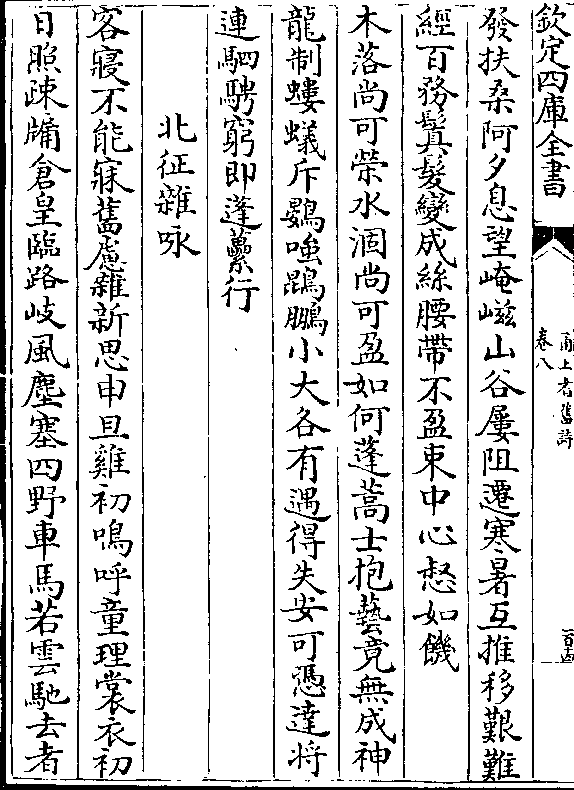 欽定四庫全書
甬上耆舊詩
卷八
發扶桑阿夕息望崦嵫山谷屢阻遷寒暑互推移艱難
經百務鬒髮變成絲腰帶不盈束中心惄如饑
木落尚可榮水涸尚可盈如何蓬蒿士抱藝竟無成神
龍制螻蟻斥鷃嗤鵾鵬小大各有遇得失安可憑達將
連駟騁窮即蓬蔂行
北征雜咏
客寢不能寐舊慮雜新思申旦雞初鳴呼童理裳衣初
日照疎牗倉皇臨路岐風塵塞四野車馬若雲馳去者